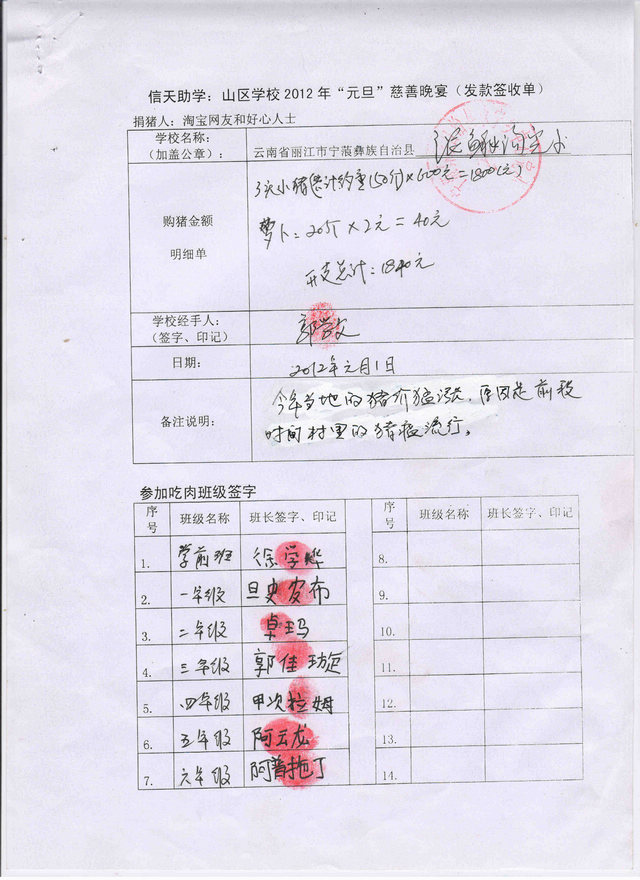 信天助学：山区学校2012年“元旦”慈善晚宴（发款签收单）
捐猪人：淘宝网友和好心人士
学校名称：
（加盖公章）：
云南省丽江市宁蒗彝族自治县
购猪金额
明细单
3次小猪(总计约重150斤)×600元=1800(元)
萝卜：20斤×2元=40元
开支总计：1840元
学校经手人：
（签字、印记）
郭学文
日期：
2012年元月1日
备注说明：
今年当地的猪价猛涨，原因是前段
时间村里的猪瘟流行。
参加吃肉班级签字
序号 班级名称 班长签字、印记 序号 班级名称 班长签字、印记
1. 学前班 徐学烨 8.
2. 一年级 旦史发布 9.
3. 二年级 卓玛 10.
4. 三年级 郭佳 11.
5. 四年级 甲次拉姆 12.
6. 五年级 阿云龙 13.
7. 六年级 阿普拖丁 14.